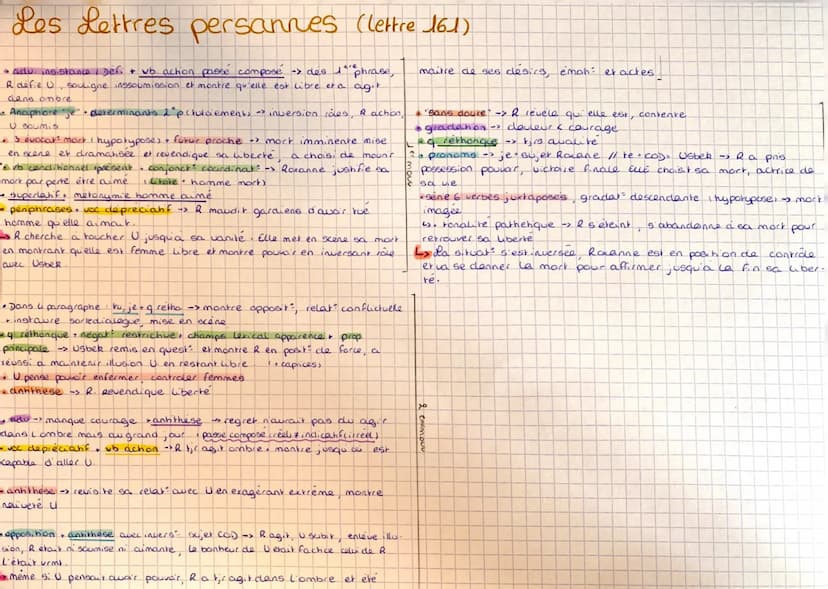 Les Lettres persannes (lettre 161)
• adv insistance, déf. + vb action passé composé -> dès 1ère phrase,
R défie U, souligne insoumission et montre qu'elle est libre et a agit
dans ombre
• Anaphore "je" + déterminants 2e p (tutoiement) -> inversion rôles, R action,
U soumis
• 3 évocat° mort (hypotypose) + futur proche -> mort imminente mise
en scène et dramatisée et revendique sa liberté, a choisi de mourir
• vb conditionnel présent + conjonct° coordinat° -> Roxanne justifie sa
mort par perte être aimé (litote + homme mort)
• superlatif + métonymie homme aimé
• périphrases + voc dépréciatif -> R maudit gardiens d'avoir tué
homme qu'elle aimait.
↳ R cherche à toucher U jusqu'à sa vanité. Elle met en scène sa mort
en montrant qu'elle est femme libre et montre pouvoir en inversant rôle
avec Usbek
• Dans 4 paragraphe : tu, je + q rétho -> montre opposit°, relat° conflictuelle
+ instaure sorte dialogue, mise en scène
• q réthorique + négat° restrictive + champs lexical apparence + prop
principale -> Usbek remis en quest° et montre R en posit° de force, a
réussi à maintenir illusion U en restant libre. (+ caprices)
• U pense pouvoir enfermer, controler femmes
• antithèse -> R. revendique liberté
• adv -> manque courage + antithèse -> regret n'aurait pas du agir
dans l'ombre mais au grand jour (passé composé (réel) ≠ indicatif (irréel)
• voc dépréciatif + vb action -> R tjr agit ombre + montre jusqu'où est
capable d'aller U.
• antithèse -> revisite sa relat° avec U en exagérant extrème, montre
naïveté U
• opposition + antithèse avec invers° sujet COD -> R agit, U subit, enlève illu-
sion, R était ni soumise ni aimante, le bonheur de U était factice celui de R
l'était vrmt.
• même si U pensait avoir pouvoir, R a tjr agit dans l'ombre et été
maitre de ses désirs, émot° et actes
1 mouv
2 mouv
• "sans doute" -> R révèle qu'elle est, contente
• gradation -> douleur < courage
• q réthorique -> tjrs dualité
• pronoms -> je + sujet Roxane // te + COD + Usbek -> R a pris
possession pouvoir, victoire finale elle choisit sa mort, actrice de
sa vie
• série 6 verbes juxtaposés, gradat° descendante (hypotypose) -> mort
imagée
↳ tonalité pathétique -> R s'éteint, s'abandonne à sa mort pour
retrouver sa liberté
↳ La situat° s'est inversée, Roxanne est en position de contrôle
et va se donner la mort pour affirmer jusqu'à la fin sa liber-
té.